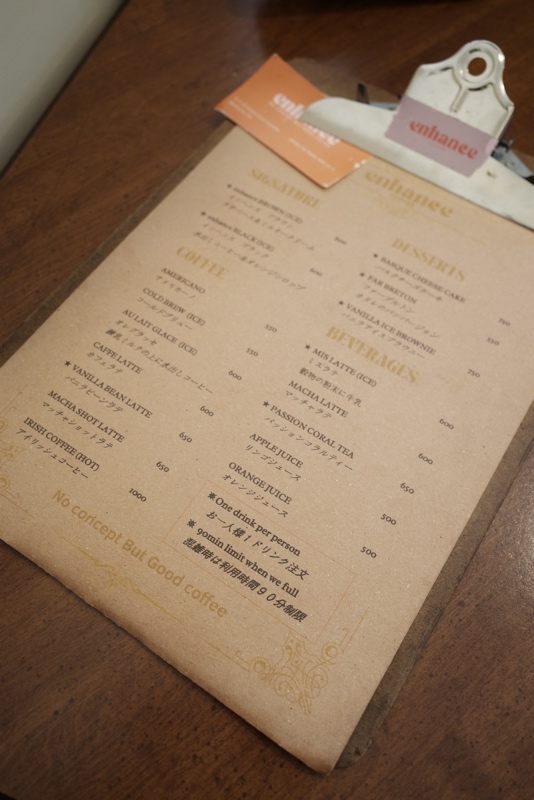 enhanee
enhanee
enhanee
SIGNATURE
★ enhance BROWN (ICE)
インヘンス ブラウン
★ enhance BLACK (ICE)
インヘンス ブラック
600
COFFEE
AMERICANO
アメリカーノ
550
COLD BREW (ICE)
コールドブリュー
550
AU LAIT GLACE (ICE)
オレグラッセ
練乳ミルクの上に水出しコーヒー
600
CAFFE LATTE
カフェラテ
600
★ VANILLA BEAN LATTE
バニラビーンラテ
650
MACHA SHOT LATTE
マッチャショットラテ
650
IRISH COFFEE (HOT)
アイリッシュコーヒー
1000
DESSERTS
★ BASQUE CHEESE CAKE
バスクチーズケーキ
★ FAR BRETON
ファーブルトン
★ VANILLA ICE BROWNIE
バニラアイスブラウニー
750
BEVERAGES
★ MIS LATTE (ICE)
ミスラテ
穀物の粉末に牛乳
600
MACHA LATTE
マッチャラテ
600
★ PASSION CORAL TEA
パッションコラルティー
650
APPLE JUICE
リンゴジュース
500
ORANGE JUICE
オレンジジュース
500
※One drink per person
お一人様1ドリンク注文
※ 90min limit when we full
混雑時は利用時間90分制限
No concept But Good coffee